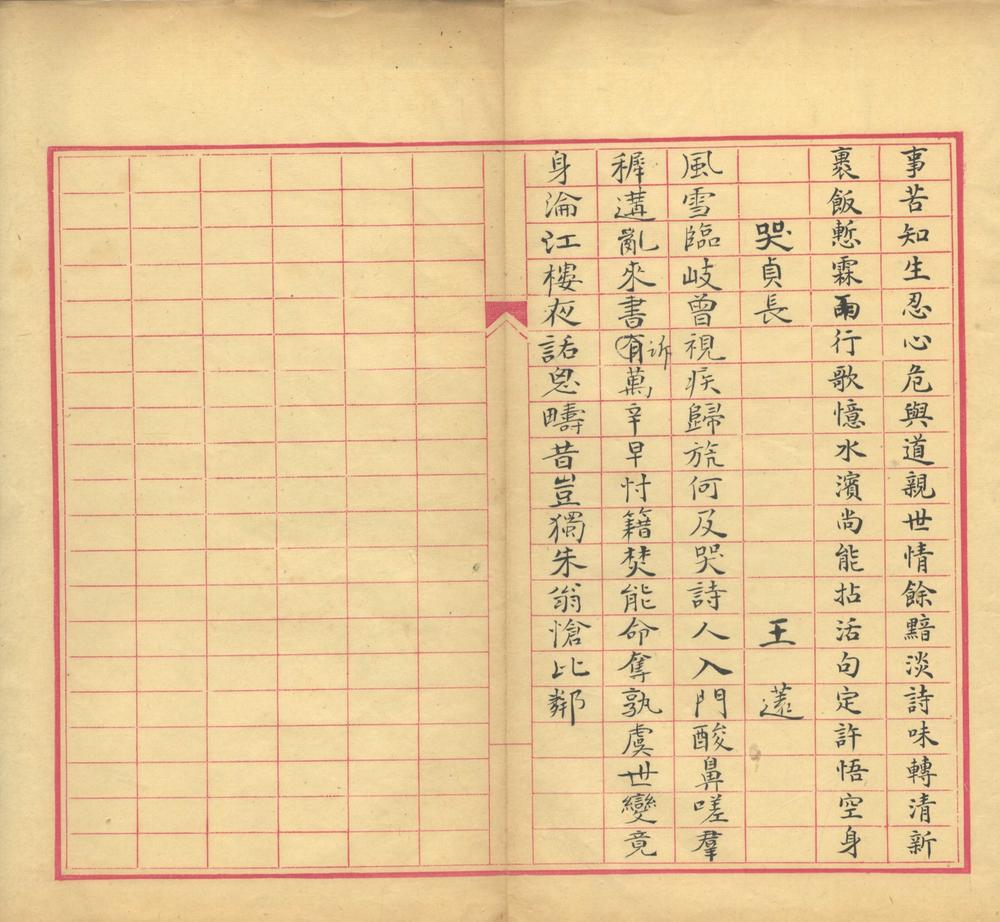 事苦知生忍心危與道親世情餘黯淡詩味轉清新
裹飯慙霖雨行歌憶水濱尚能拈活句定許悟空身
哭貞長 王 蘧
風雪臨岐曾視疾歸旐何及哭詩人入門酸鼻嗟羣
穉遘亂來書有訴萬辛早忖籍焚能命奪孰虞世變竟
身淪江樓夜話思疇昔豈獨朱翁愴比鄰